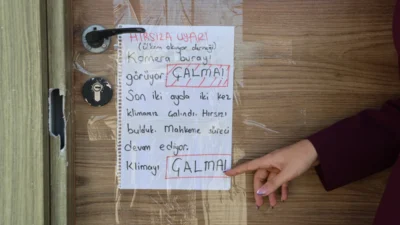 HIRSIZA UYARI
Kamera burayı
görüyor. ÇALMA!
Son iki ayda iki kez
klimamız çalındı. Hırsızı
bulduk. Mahkeme süreci
devam ediyor.
Klimayı ÇALMA!